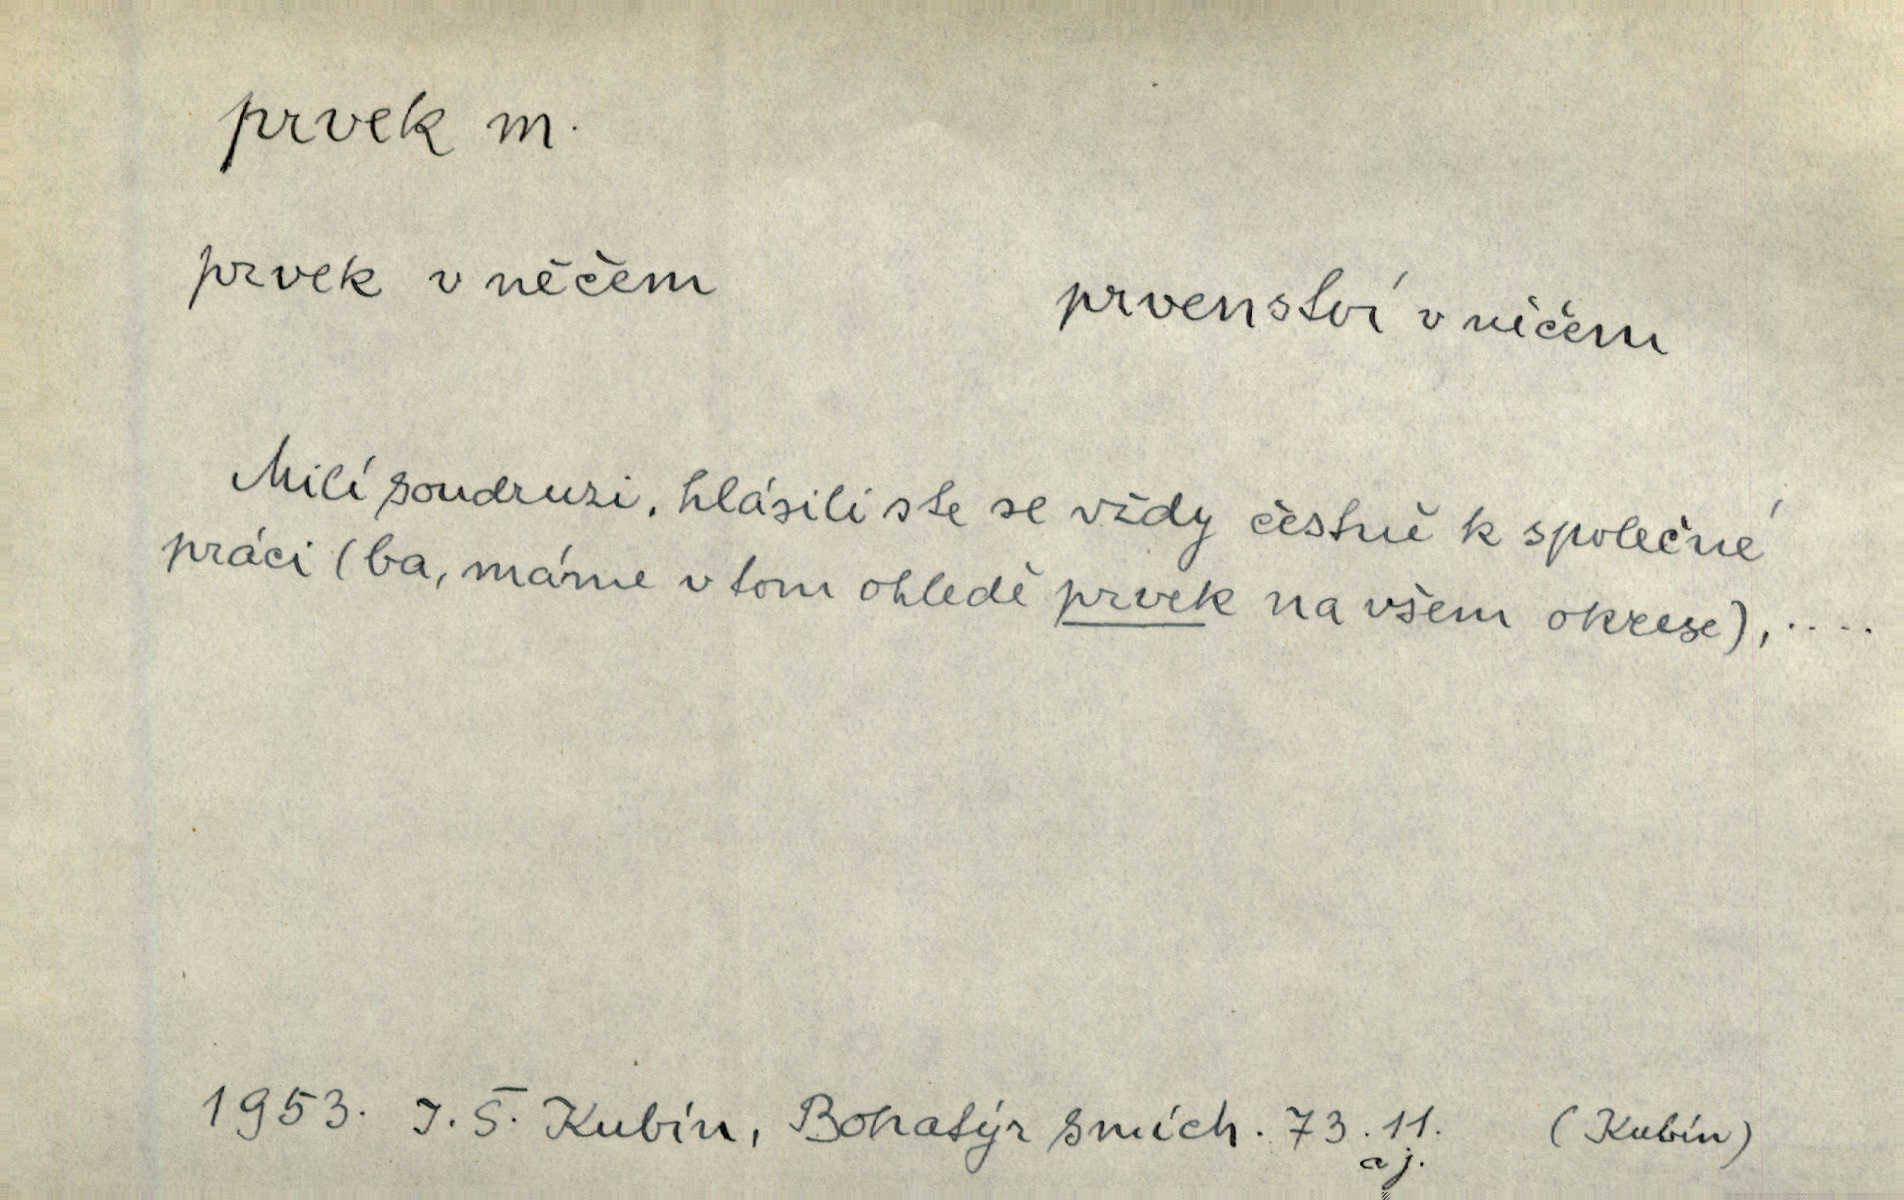 prvek m.
prvek v něčem
prvenství v něčem
Milí soudruzi, hlásili ste se vždy čestně k společné
práci (ba, máme v tom ohledě prvek na všem okrese), ....
1953. J. Š. Kubín, Bohatýr smích. 73. 11. (Kubín)
aj.